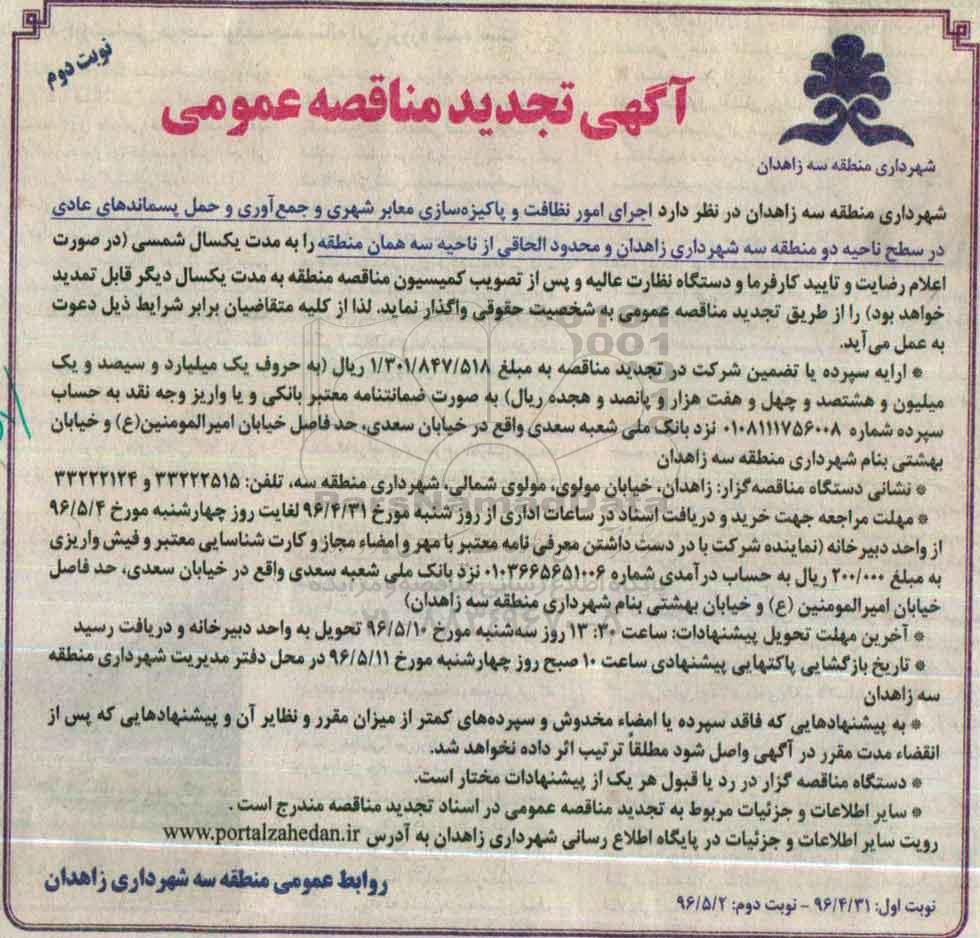 نوبت دوم
آگهی تجدید مناقصه عمومی
شهرداری منطقه سه زاهدان
شهرداری منطقه سه زاهدان در نظر دارد اجرای امور نظافت و پاکیزه‌سازی معابر شهری و جمع‌آوری و حمل پسماندهای عادی
در سطح ناحیه دو منطقه سه شهرداری زاهدان و محدود الحاقی از ناحیه سه همان منطقه را به مدت یکسال شمسی (در صورت
اعلام رضایت و تایید کارفرما و دستگاه نظارت عالیه و پس از تصویب کمیسیون مناقصه منطقه به مدت یکسال دیگر قابل تمدید
خواهد بود) را از طریق تجدید مناقصه عمومی به شخصیت حقوقی واگذار نماید. لذا از کلیه متقاضیان برابر شرایط ذیل دعوت
به عمل می‌آید.
* ارایه سپرده یا تضمین شرکت در تجدید مناقصه به مبلغ ۱/۳۰۱/۸۴۷/۵۱۸ ریال (به حروف یک میلیارد و سیصد و یک
میلیون و هشتصد و چهل و هفت هزار و پانصد و هجده ریال) به صورت ضمانتنامه معتبر بانکی و یا واریز وجه نقد به حساب
سپرده شماره ۰۱۰۸۱۱۱۷۵۶۰۰۸ نزد بانک ملی شعبه سعدی واقع در خیابان سعدی، حد فاصل خیابان امیرالمومنین(ع) و خیابان
بهشتی بنام شهرداری منطقه سه زاهدان
* نشانی دستگاه مناقصه‌گزار: زاهدان، خیابان مولوی، مولوی شمالی، شهرداری منطقه سه، تلفن: ۳۳۲۲۲۵۱۵ و ۳۳۲۲۲۱۲۴
* مهلت مراجعه جهت خرید و دریافت اسناد در ساعات اداری از روز شنبه مورخ ۹۶/۴/۳۱ لغایت روز چهارشنبه مورخ ۹۶/۵/۴
از واحد دبیرخانه (نماینده شرکت با در دست داشتن معرفی نامه معتبر با مهر و امضاء مجاز و کارت شناسایی معتبر و فیش واریزی
به مبلغ ۲۰۰/۰۰۰ ریال به حساب درآمدی شماره ۰۱۰۳۶۶۵۶۵۱۰۰۶ نزد بانک ملی شعبه سعدی واقع در خیابان سعدی، حد فاصل
خیابان امیرالمومنین (ع) و خیابان بهشتی بنام شهرداری منطقه سه زاهدان)
* آخرین مهلت تحویل پیشنهادات: ساعت ۱۳:۳۰ روز سه‌شنبه مورخ ۹۶/۵/۱۰ تحویل به واحد دبیرخانه و دریافت رسید
* تاریخ بازگشایی پاکتهایی پیشنهادی ساعت ۱۰ صبح روز چهارشنبه مورخ ۹۶/۵/۱۱ در محل دفتر مدیریت شهرداری منطقه
سه زاهدان
* به پیشنهادهایی که فاقد سپرده یا امضاء مخدوش و سپرده‌های کمتر از میزان مقرر و نظایر آن و پیشنهادهایی که پس از
انقضاء مدت مقرر در آگهی واصل شود مطلقاً ترتیب اثر داده نخواهد شد.
* دستگاه مناقصه گزار در رد یا قبول هر یک از پیشنهادات مختار است.
* سایر اطلاعات و جزئیات مربوط به تجدید مناقصه عمومی در اسناد تجدید مناقصه مندرج است .
رویت سایر اطلاعات و جزئیات در پایگاه اطلاع رسانی شهرداری زاهدان به آدرس www.portalzahedan.ir
روابط عمومی منطقه سه شهرداری زاهدان
نوبت اول: ۹۶/۴/۳۱ - نوبت دوم: ۹۶/۵/۲